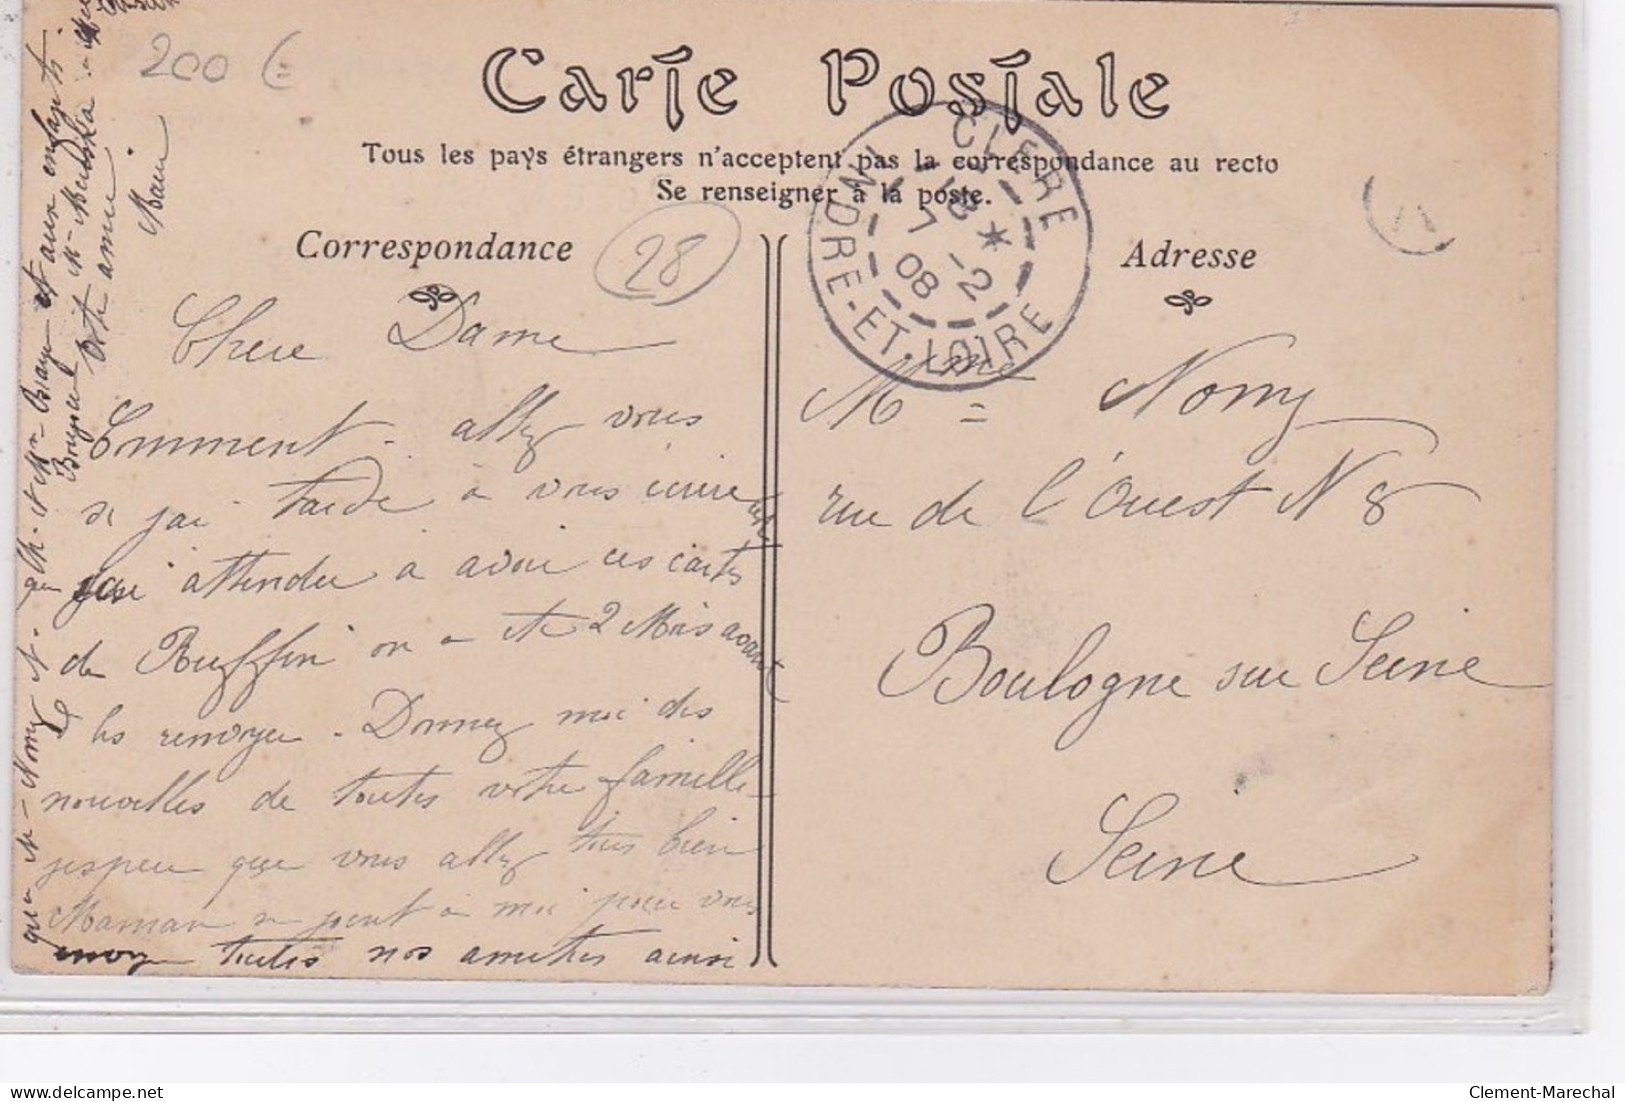 200 €
Carte Postale
Tous les pays étrangers n'acceptent pas la correspondance au recto
Se renseigner à la poste.
Correspondance
28
Adresse
CLERE
INDRE-ET-LOIRE
7 -2
08
Chere Dame
Comment allez vous
si jai tardé à vous ecrire cest
que jai attendu à avoir ces cartes
de Ruffin on a été 2 Mois avant
de les renvoyer. Donnez moi des
nouvelles de toutes votre famille
jespere que vous allez tous bien
Maman se joint à moi pour vous
envoyer toutes nos amities ainsi
qu'a Mr Nomy
et aux enfants.
Votre amie
Marie
Mme Nomy
rue de l'Ouest N 8
Boulogne sur Seine
Seine
Clement-Marechal